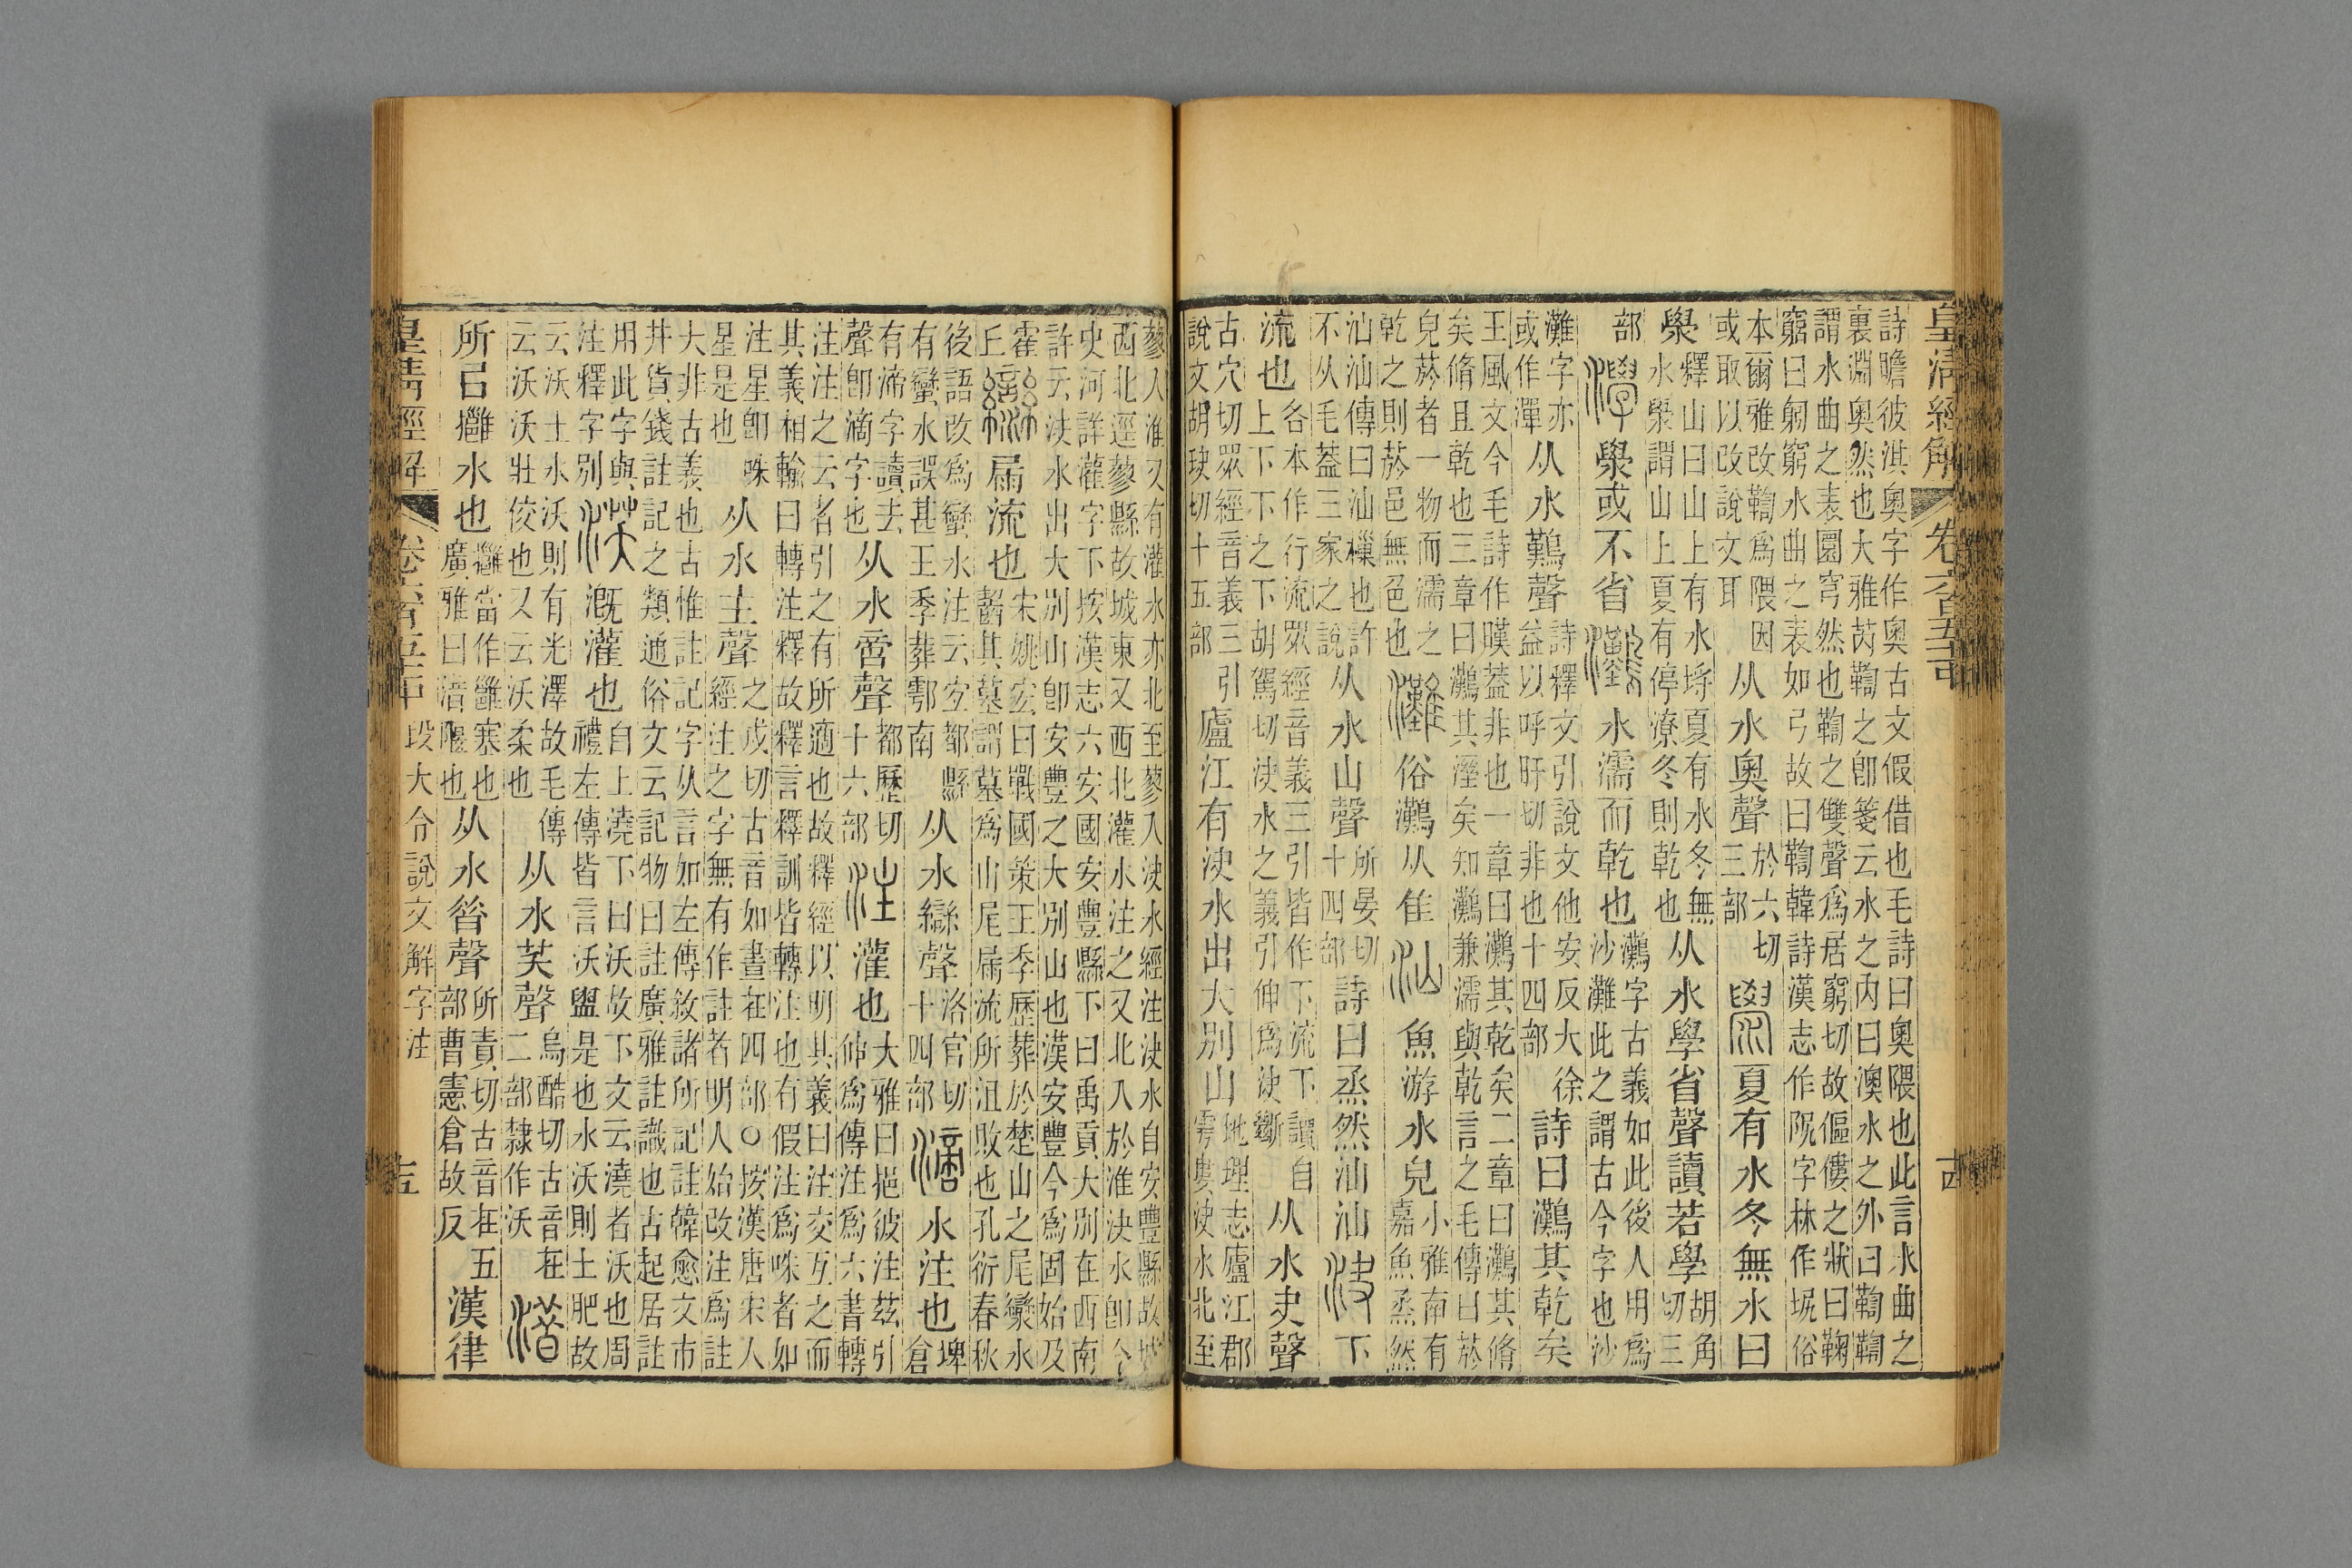 皇清經解
詩瞻彼淇奧字作奧古文假借也毛詩曰奧隈也此言水曲之
裏淵奧然也大雅芮鞫之卽箋云水之内曰澳水之外曰鞫鞫
謂水曲之表圜穹然也鞫之雙聲爲居窮切故傴僂之狀曰鞠
窮曰躬窮水曲之表如弓故曰鞫韓詩漢志作阮字林作坭俗
本爾雅改鞫爲隈因
或取以改說文耳
从水奧聲
於六切
三部
夏有水冬無水曰
㶅
釋山曰山上有水埒夏有水冬無
水㶅謂山上夏有停潦冬則乾也
从水學省聲讀若學
胡角
切三
部
㶅或不省
水濡而乾也
灘字古義如此後人用爲
沙灘此之謂古今字也沙
灘字亦
或作潬
从水鸛聲
詩釋文引說文他安反大徐
益以呼旰切非也十四部
詩曰灘其乾矣
王風文今毛詩作暵蓋非也一章曰灘其乾矣二章曰灘其脩
矣脩且乾也三章曰灘其溼矣知灘兼濡與乾言之毛傳曰菸
皃菸者一物而濡之
乾之則菸邑無色也
俗灘从隹
魚游水皃
小雅南有
嘉魚烝然
汕汕傳曰汕樔也許
不从毛蓋三家之說
从水山聲
所晏切
十四部
詩曰烝然汕汕
下
流也
各本作行流眾經音義三引皆作下流下讀自
上下下之下胡駕切決水之義引伸爲決斷
从水夬聲
古穴切眾經音義三引
說文胡玦切十五部
廬江有決水出大別山
地理志廬江郡
雩婁決水北至
蓼入淮又有灌水亦北至蓼入決水經注決水自安豐縣故城
西北逕蓼縣故城東又西北灌水注之又北入於淮決水卽今
史河詳灌字下按漢志六安國安豐縣下曰禹貢大別在西南
許云決水出大別山卽安豐之大別山也漢安豐今爲固始及
霍
丘
屚流也
宋姚宏曰戰國策王季歷葬於楚山之尾欒水
齧其墓謂墓爲山尾屚流所沮敗也孔衍春秋
後語改爲蠻水注云空都縣
有蠻水誤甚王季葬鄠南
从水䜌聲
洛官切
十四部
水注也
埤
倉
有渧字讀去
聲卽滴字也
从水啻聲
都歷切
十六部
灌也
大雅曰挹彼注茲引
伸爲傳注爲六書轉
注注之云者引之有所適也故釋經以明其義曰注交互之而
其義相輸曰轉注釋故釋言釋訓皆轉注也有假注爲咮者如
注星卽咮
星是也
从水主聲
之戍切古音如晝在四部○按漢唐宋人
經注之字無有作註者明人始改注爲註
大非古義也古惟註記字从言如左傳敘諸所記註韓愈文市
井貨錢註記之類通俗文云記物曰註廣雅註識也古起居註
用此字與
注釋字別
溉灌也
自上澆下曰沃故下文云澆者沃也周
禮左傳皆言沃盥是也水沃則土肥故
云沃土水沃則有光澤故毛傳
云沃沃壯佼也又云沃柔也
从水芺聲
烏酷切古音在
二部隸作沃
所㠯攡水也
攡當作雝塞也
廣雅曰湆隁也
从水昝聲
所責切古音在五
部曹憲倉故反
漢律
皇清經解
段大令說文解字注